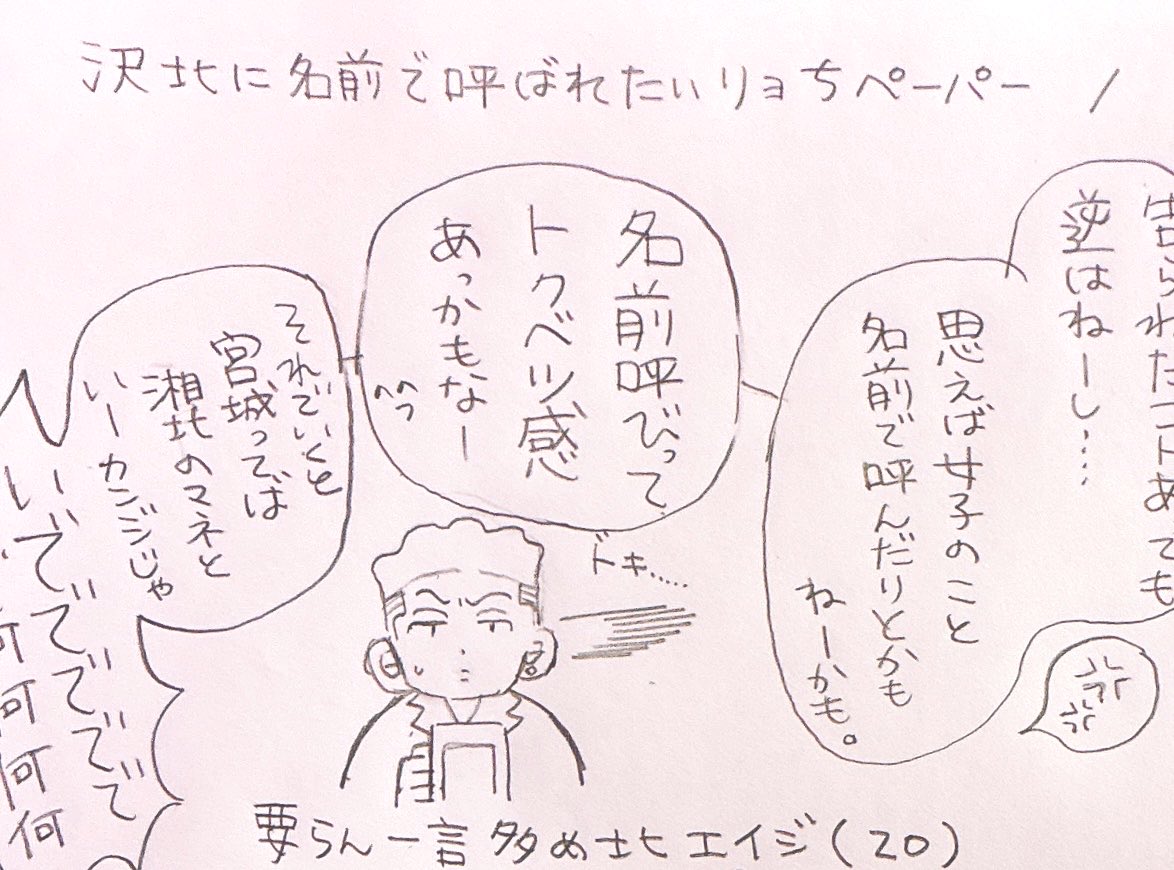 沢北に名前で呼ばれたいリョちペーパー /
告られたコトあても
逆はねーし……
思えば女子のこと
名前で呼んだりとかも
ねーかも。
名前呼びって
トクベツ感
あっかもなー
へへっ
ドキ……
それでいくと
宮城っては
湘北のマネと
いーカンジじゃ
いででででででで
何何何何
要らん一言多め北エイジ(20)